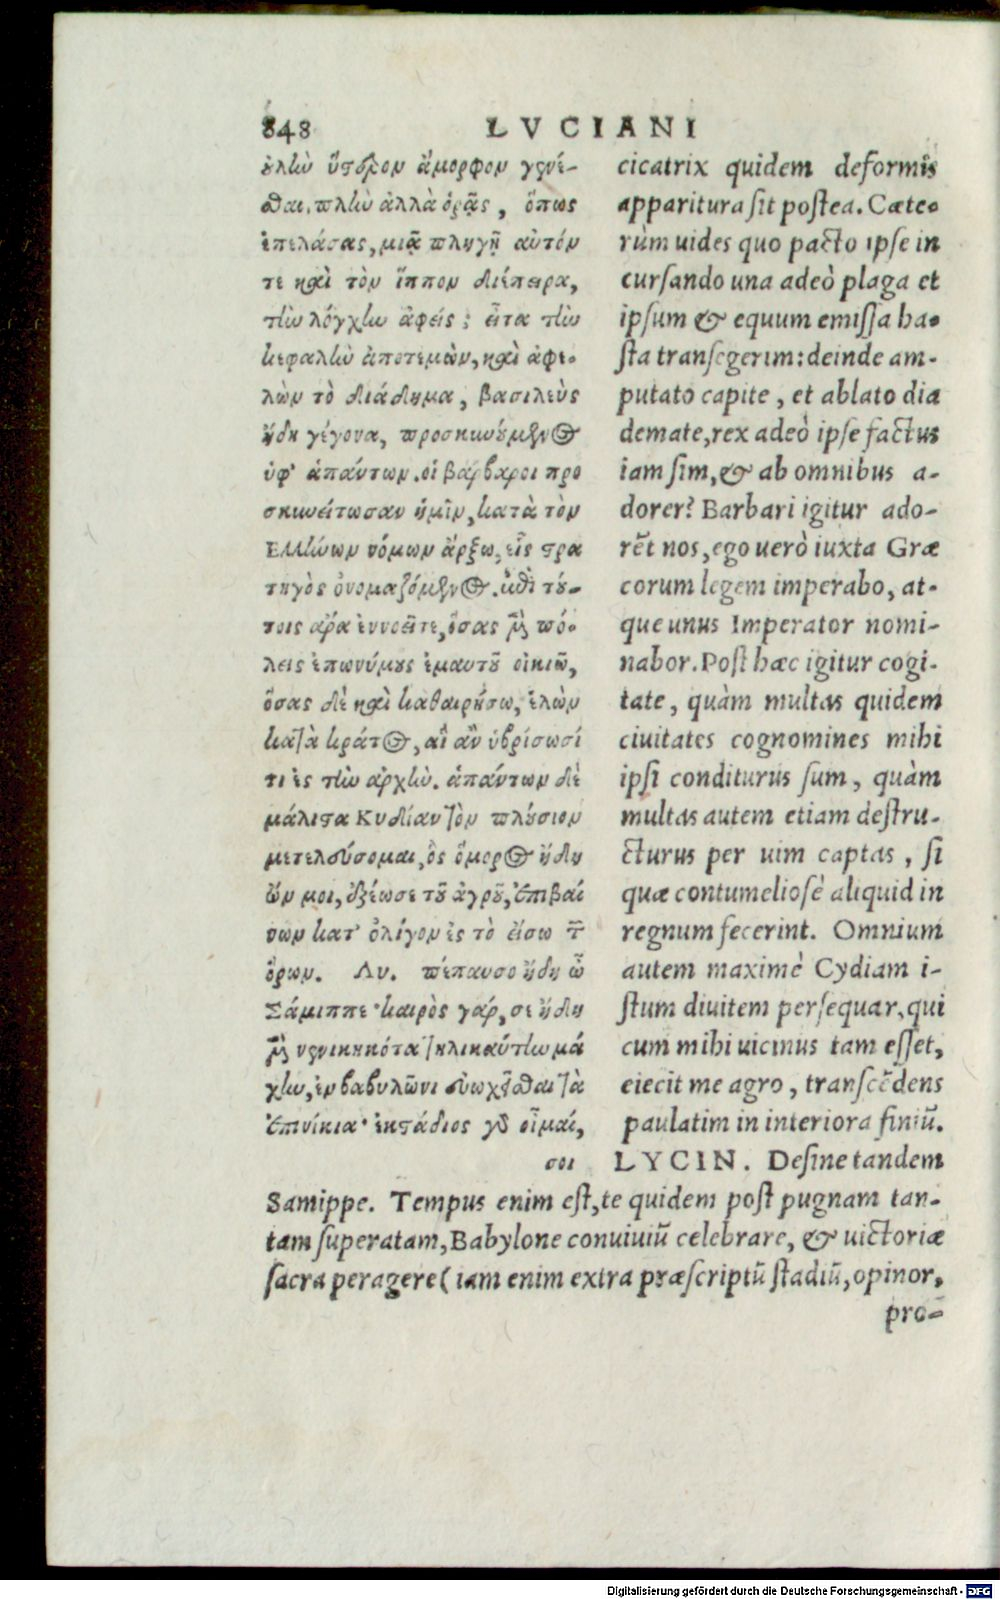 848 LVCIANI
ὐλὴν ὕστερον ἄμορφον γενέ-
σθαι. πλὴν ἀλλὰ ὁρᾷς, ὅπως
ἐπελάσας, μιᾷ πληγῇ αὐτόν
τε καὶ τὸν ἵππον διέπειρα,
τὴν λόγχην ἀφείς; εἶτα τὴν
κεφαλὴν ἀποτεμὼν, καὶ ἀφε-
λὼν τὸ διάδημα, βασιλεὺς
ἤδη γέγονα, προσκυνούμενος
ὑφ' ἁπάντων. οἱ βάρβαροι προ
σκυνείτωσαν ἡμῖν, κατὰ τὸν
Ἑλλήνων νόμων ἄρξω, εἷς στρα
τηγὸς ὀνομαζόμενος. ἐπὶ τού-
τοις ἄρα ἐννοεῖτε, ὅσας μὲν πό-
λεις ἐπωνύμους ἐμαυτοῦ οἰκιῶ,
ὅσας δὲ καὶ καθαιρήσω, ἑλὼν
κατὰ κράτος, αἳ ἂν ὑβρίσωσί
τι ἐς τὴν ἀρχήν. ἁπάντων δὲ
μάλιστα Κυδίαν τὸν πλούσιον
μετελεύσομαι, ὃς ὅμορος ἤδη
ὤν μοι, ἐξέωσε τοῦ ἀγροῦ, ἐπιβαί
νων κατ' ὀλίγον ἐς τὸ εἴσω τῶν
ὅρων. Λυ. πέπαυσο ἤδη ὦ
Σάμιππε· καιρὸς γάρ, σε ἤδη
μὲν νενικηκότα τηλικαύτην μά
χην, ἐν βαβυλῶνι εὐωχεῖσθαι τὰ
ἐπινίκια· ἑκστάδιος γὰρ οἶμαί,
σοι
cicatrix quidem deformis
apparitura sit postea. Cæte-
rùm uides quo pacto ipse in
cursando una adeò plaga et
ipsum & equum emissa ha-
sta transegerim: deinde am-
putato capite, et ablato dia
demate, rex adeò ipse factus
iam sim, & ab omnibus a-
dorer? Barbari igitur ado-
rēt nos, ego uerò iuxta Græ
corum legem imperabo, at-
que unus Imperator nomi-
nabor. Post hæc igitur cogi-
tate, quàm multas quidem
ciuitates cognomines mihi
ipsi conditurus sum, quàm
multas autem etiam destru-
cturus per uim captas, si
quæ contumeliosè aliquid in
regnum fecerint. Omnium
autem maximè Cydiam i-
stum diuitem persequar, qui
cum mihi uicinus iam esset,
eiecit me agro, transcēdens
paulatim in interiora finiū.
LYCIN. Desine tandem
Samippe. Tempus enim est, te quidem post pugnam tan-
tam superatam, Babylone conuiuiū celebrare, & uictoriæ
sacra peragere (iam enim extra præscriptū stadiū, opinor,
pro-
Digitalisierung gefördert durch die Deutsche Forschungsgemeinschaft - DFG